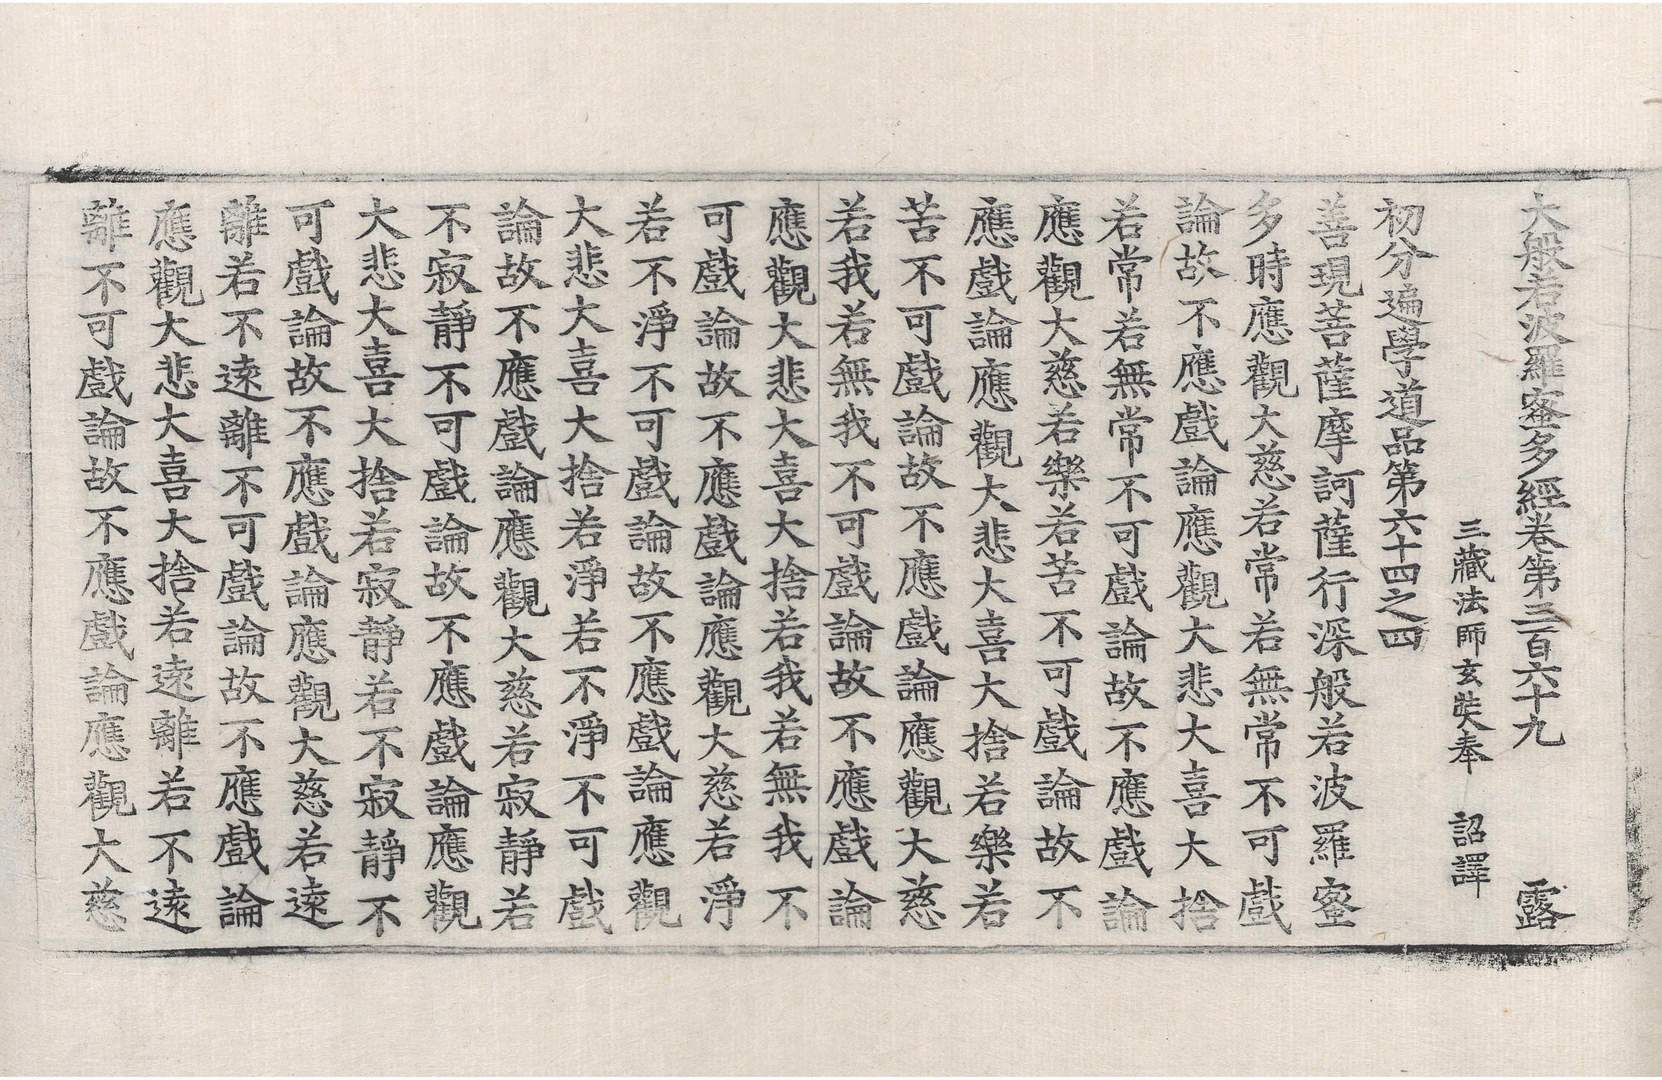 大般若波羅蜜多經卷第三百六十九 露
三藏法師玄奘奉 詔譯
初分遍學道品第六十四之四
善現菩薩摩訶薩行深般若波羅蜜
多時應觀大慈若常若無常不可戲
論故不應戲論應觀大悲大喜大捨
若常若無常不可戲論故不應戲論
應觀大慈若樂若苦不可戲論故不
應戲論應觀大悲大喜大捨若樂若
苦不可戲論故不應戲論應觀大慈
若我若無我不可戲論故不應戲論
應觀大悲大喜大捨若我若無我不
可戲論故不應戲論應觀大慈若淨
若不淨不可戲論故不應戲論應觀
大悲大喜大捨若淨若不淨不可戲
論故不應戲論應觀大慈若寂靜若
不寂靜不可戲論故不應戲論應觀
大悲大喜大捨若寂靜若不寂靜不
可戲論故不應戲論應觀大慈若遠
離若不遠離不可戲論故不應戲論
應觀大悲大喜大捨若遠離若不遠
離不可戲論故不應戲論應觀大慈